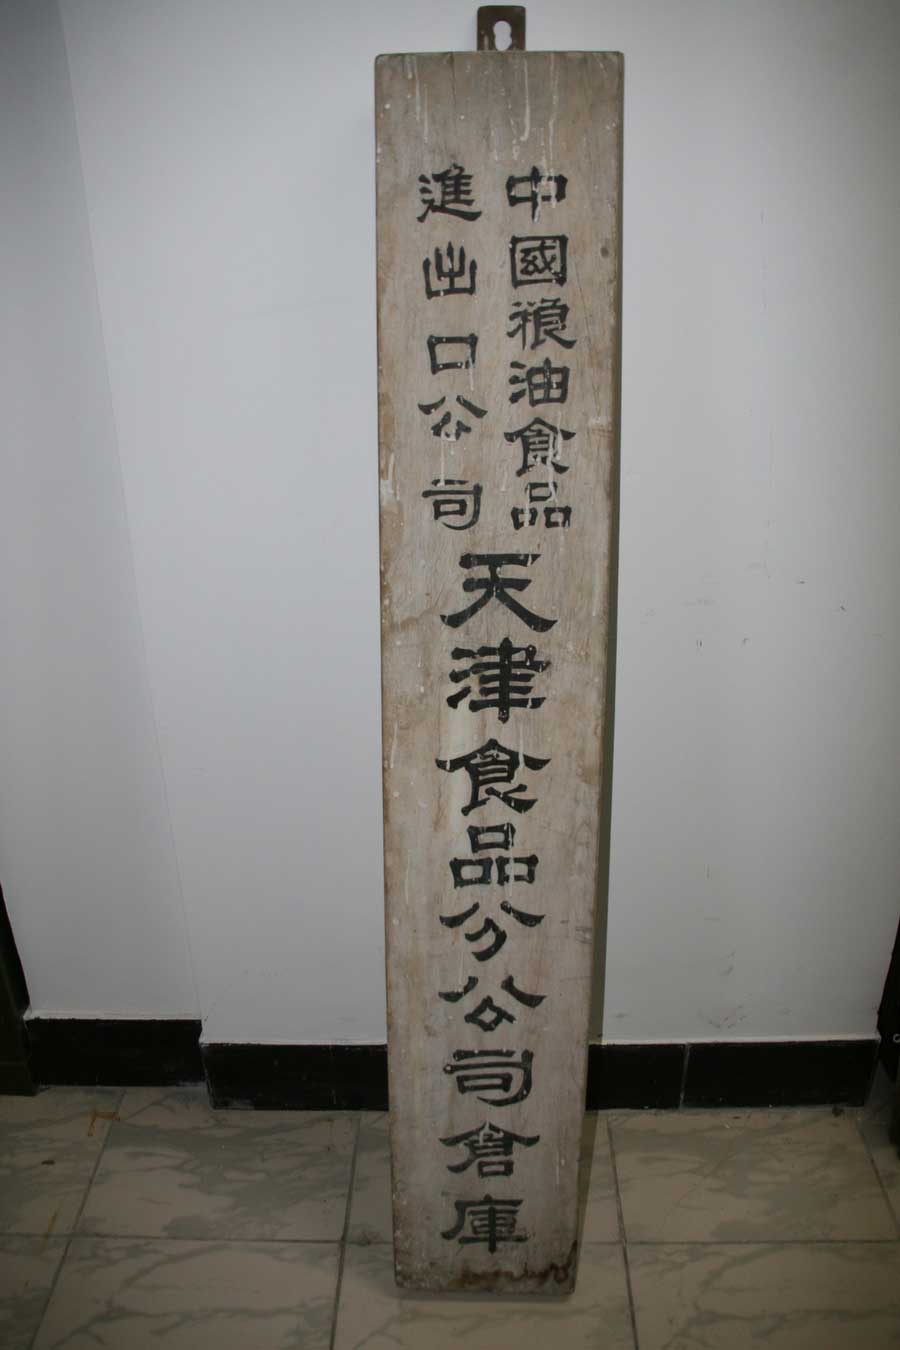 中國粮油食品
進出口公司
天津食品分公司倉庫